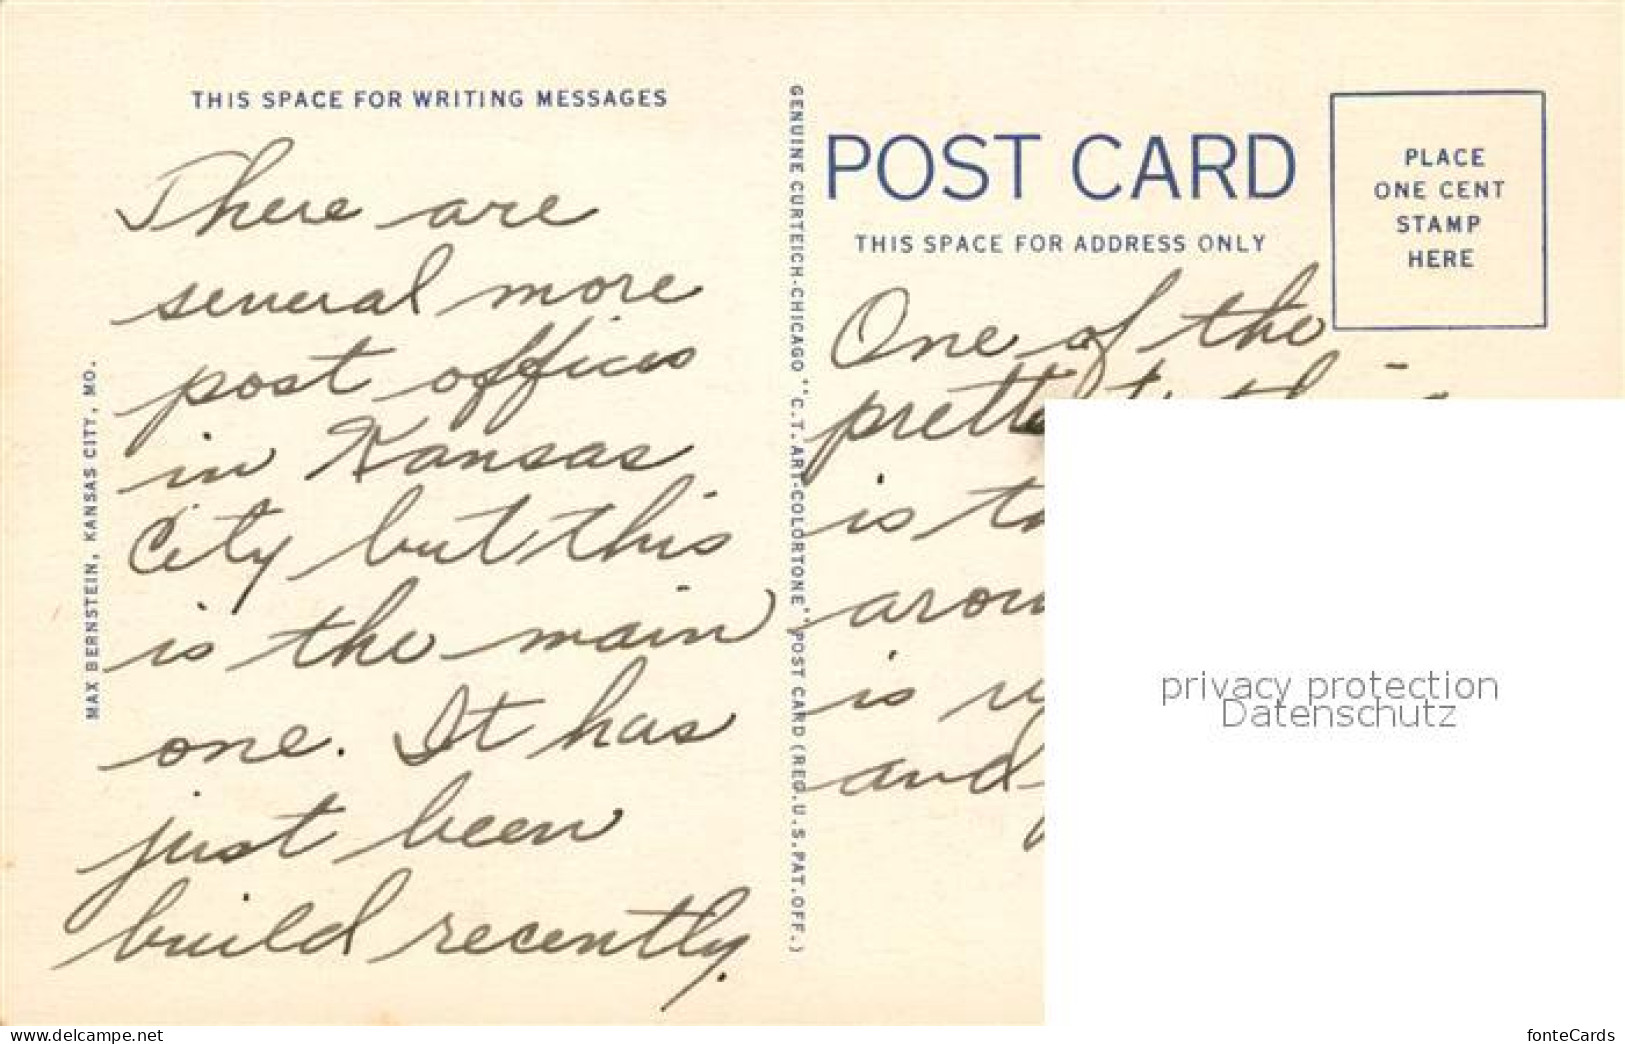 THIS SPACE FOR WRITING MESSAGES
There are
several more
post offices
in Kansas
City but this
is the main
one. It has
just been
build recently.
MAX BERNSTEIN, KANSAS CITY, MO.
GENUINE CURTEICH-CHICAGO "C.T. ART-COLORTONE" POST CARD (REG. U.S. PAT. OFF.)
POST CARD
THIS SPACE FOR ADDRESS ONLY
PLACE
ONE CENT
STAMP
HERE
One of the
is
is
and
privacy protection
Datenschutz
www.delcampe.net
fonteCards